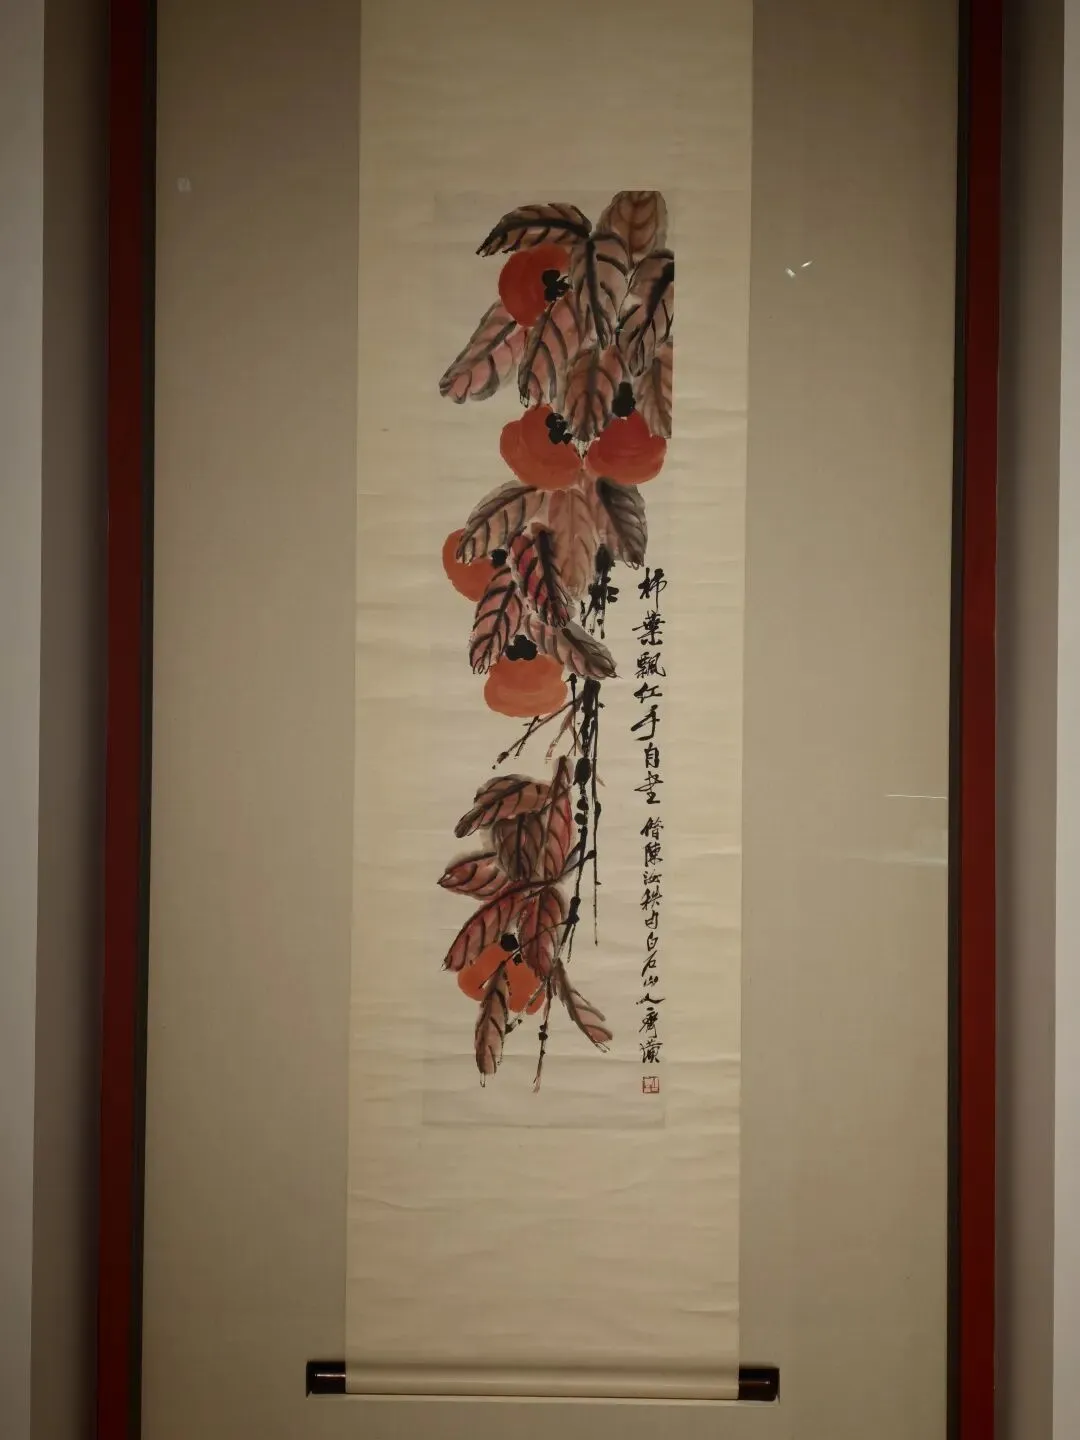 柿葉飄紅手自書 借陳汝秩句白石山人齊璜